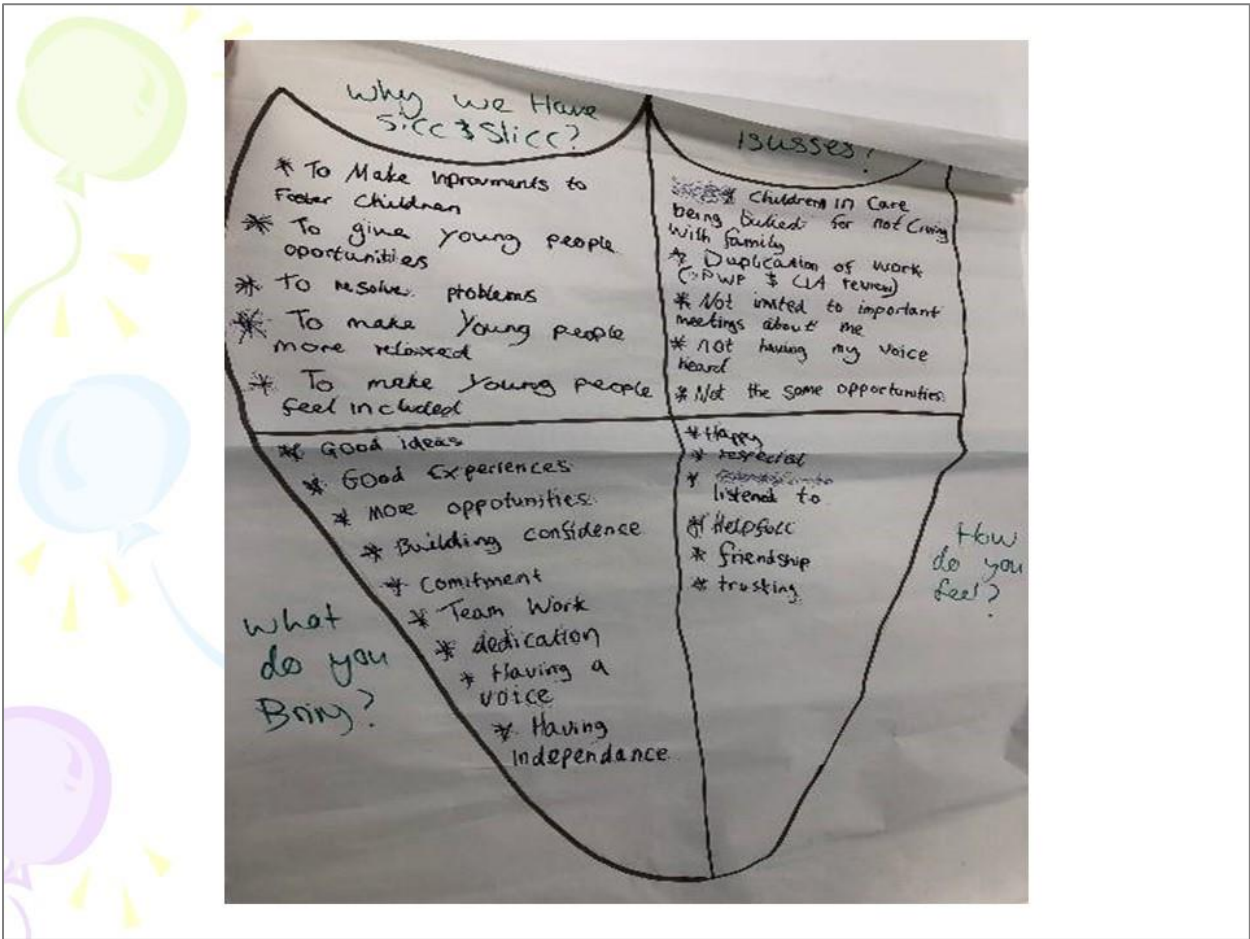 Why we Have
Sicc & Slicc?
* To Make Inprovments to
Foster Children
* To give young people
oportunities
* To resolve problems
* To make Young people
more relaxed
* To make Young people
feel included
Isusses?
* Childrens In Care
being for not living
With family
* Duplication of work
(PWP & CLA review)
* Not invited to important
meetings about me
* not having my voice
heard
* Not the same opportunities
What
do you
Bring?
* Good ideas
* Good Experiences
* more oppotunities
* Building confidence
* Comitment
* Team Work
* dedication
* Having a
voice
* Having
Independance
How
do you
feel?
* Happy
*
*
listened to
* Helpfull
* friendship
* trusting